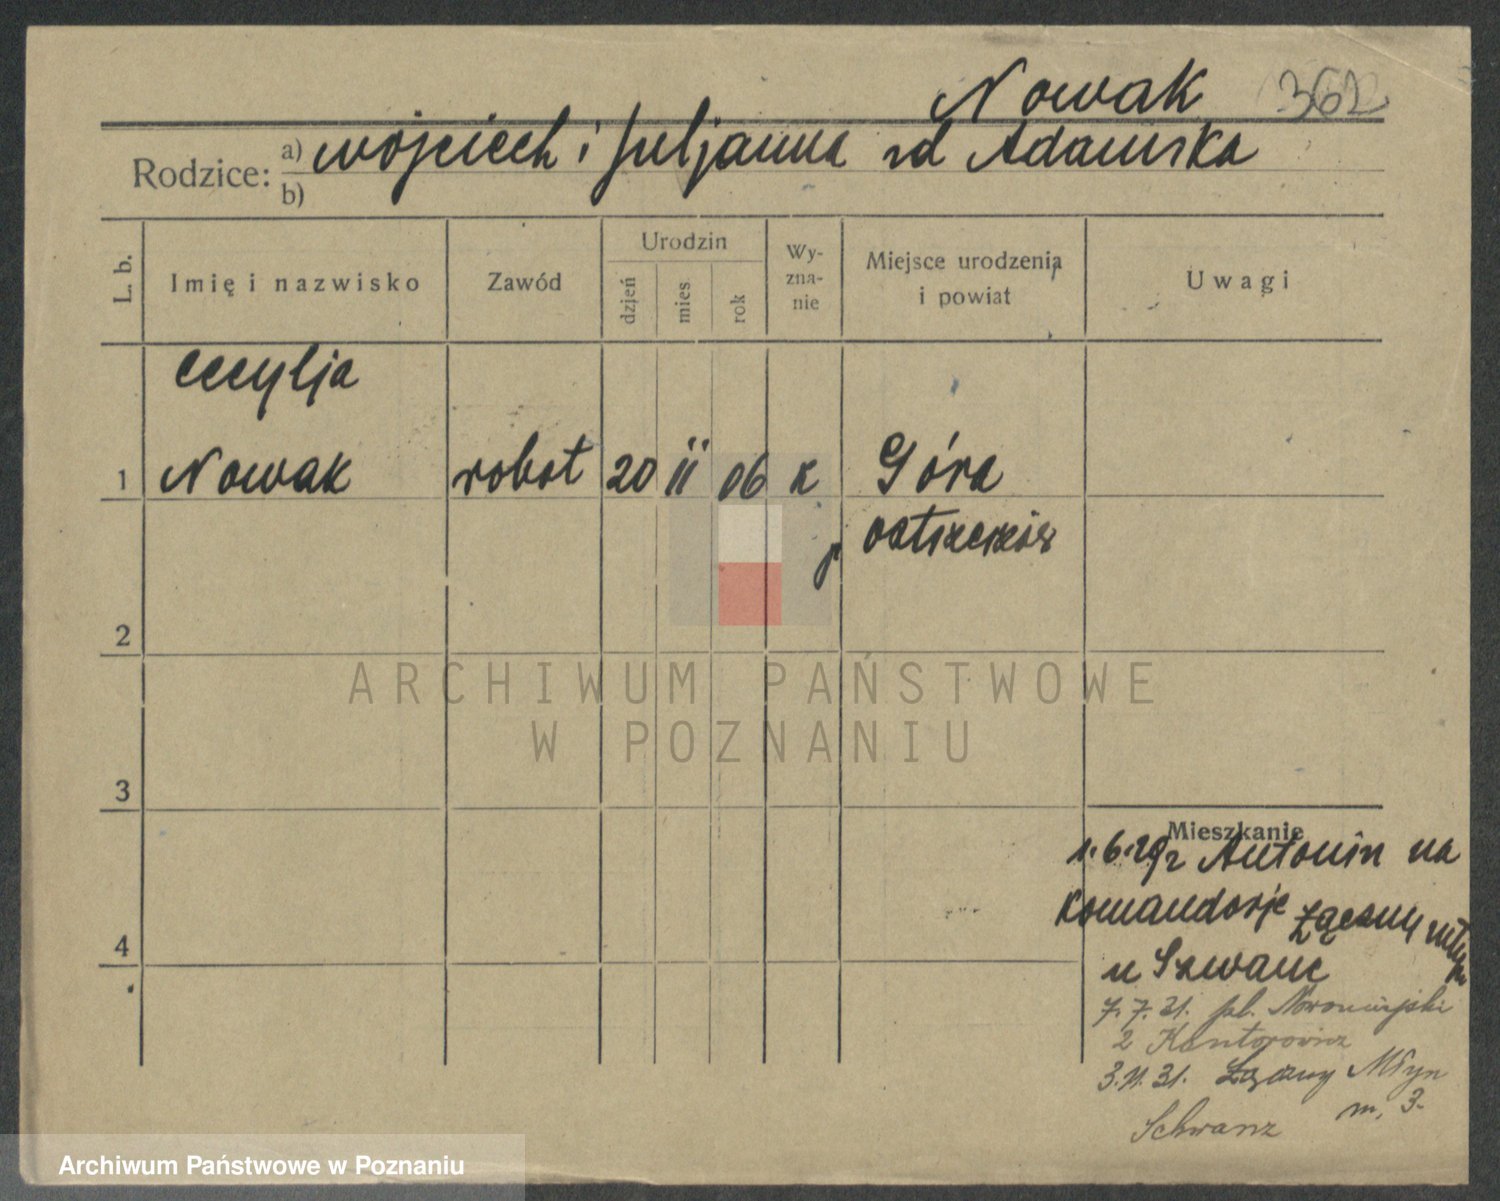 Nowak 362
Rodzice: a) wojciech i juljanna zd Adamska
b)
L. b.
Imię i nazwisko
Zawód
Urodzin
dzień
mies
rok
Wy-
zna-
nie
Miejsce urodzenia
i powiat
Uwagi
cecylja
1 Nowak robot 20 II 06 k Góra
2
3
4
Mieszkanie
1.6.29r Antonin na
Komandorje Łączny młyn
u Szwanc
7.7.31. pl. Nowomiejski
2 Kantorowicz
3.11.31. Łączny Młyn
m. 3.
Schwanz
ARCHIWUM PAŃSTWOWE
W POZNANIU
Archiwum Państwowe w Poznaniu